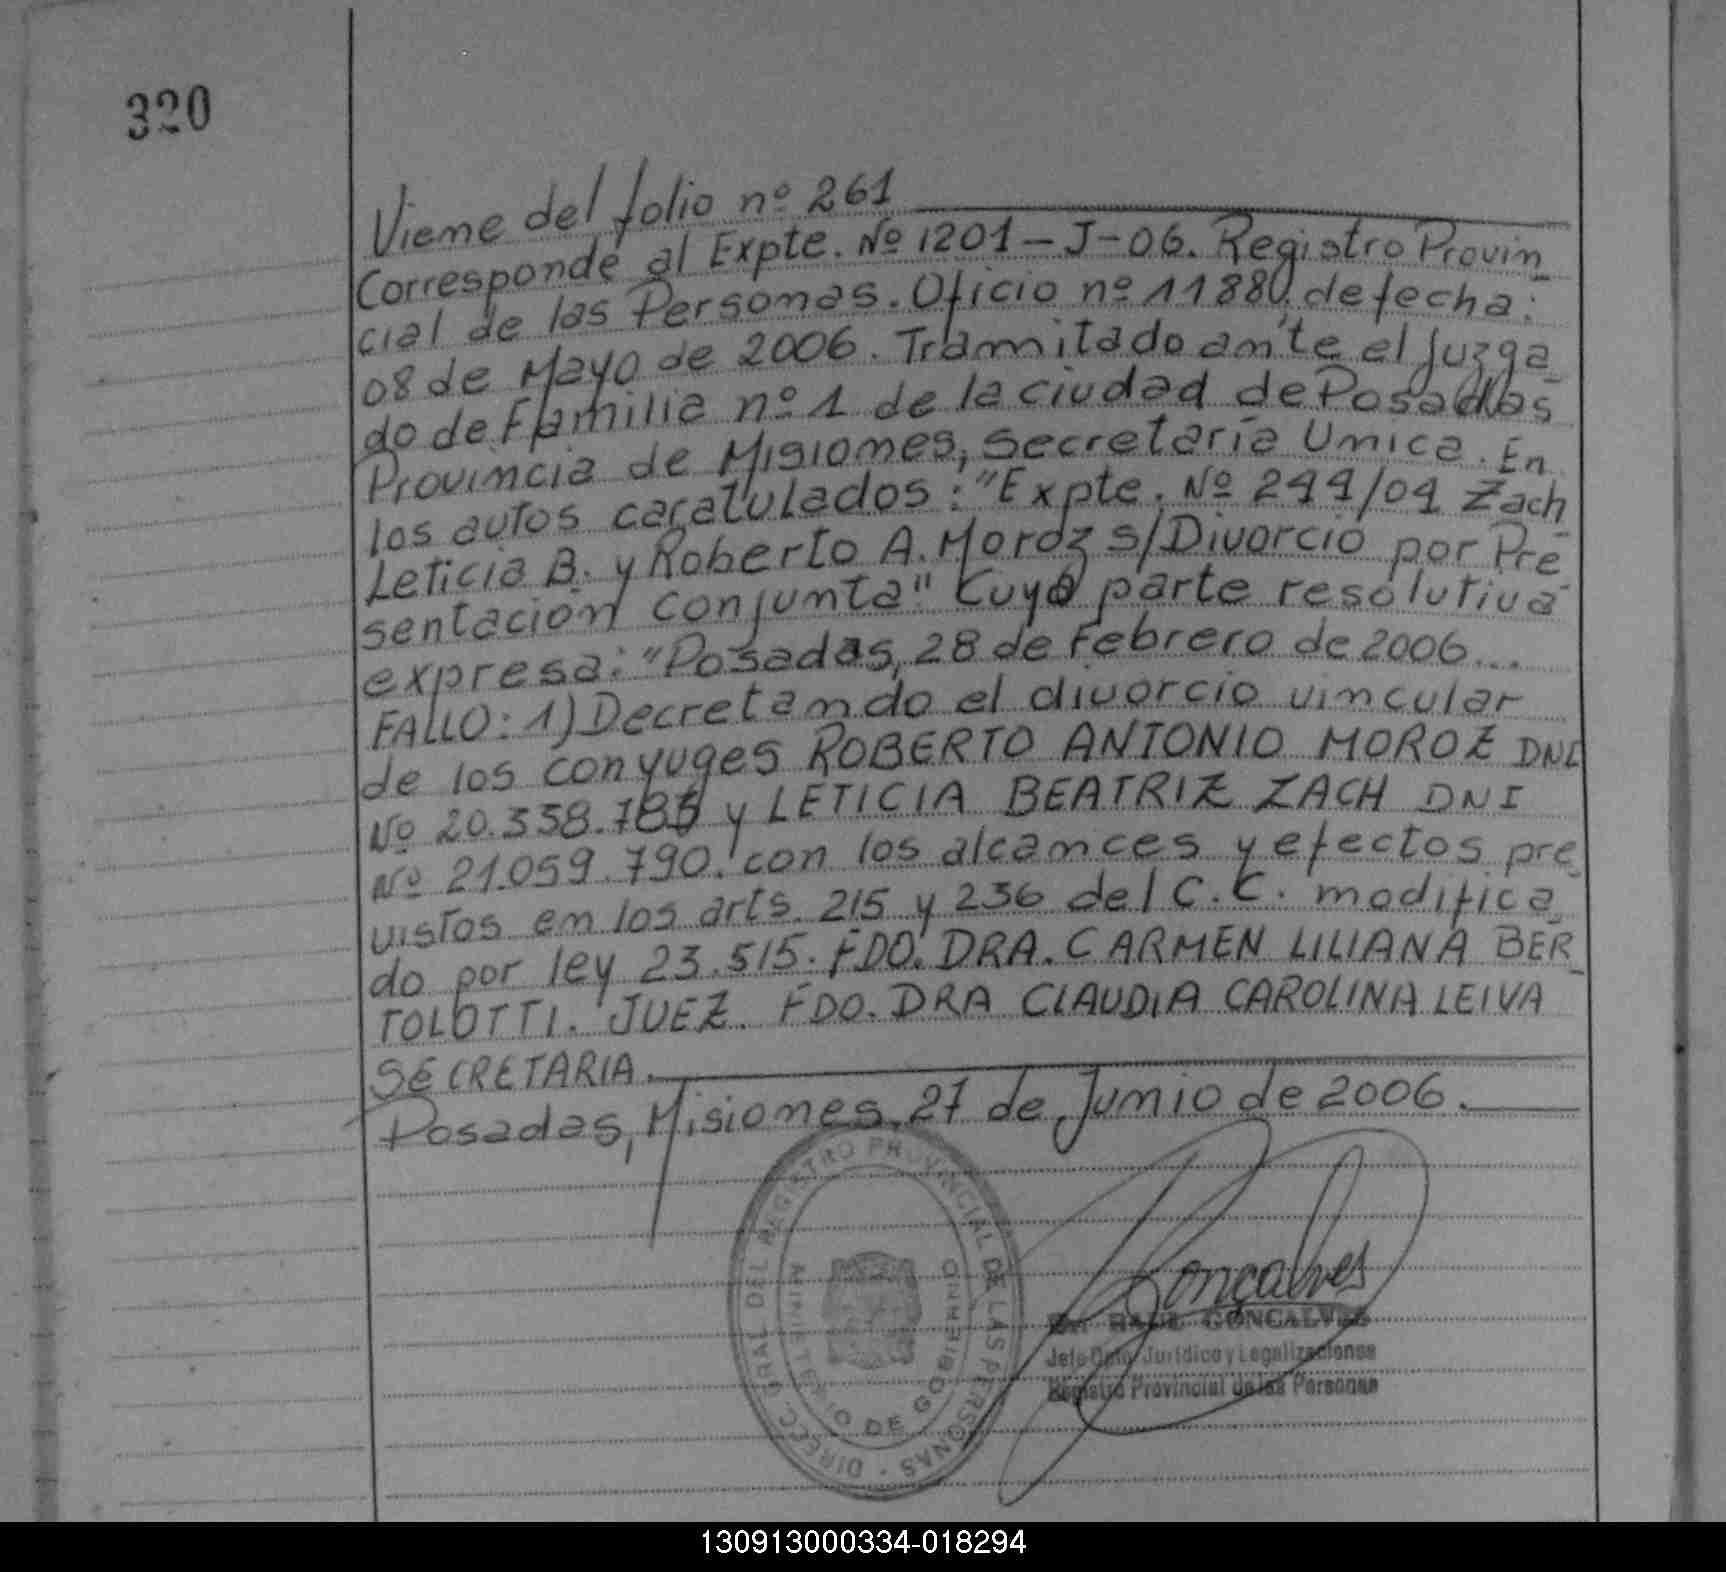 320
Viene del folio nº 261
Corresponde al Expte. Nº 1201-J-06. Registro Provin_
cial de las Personas. Oficio nº 1188 de fecha:
08 de Mayo de 2006. Tramitado ante el Juzga_
do de Familia nº 1 de la ciudad de Posadas
Provincia de Misiones, secretaria Unica. En
los autos caratulados: "Expte. Nº 244/04 Zach
Leticia B. y Roberto A. Moroz s/Divorcio por Pre_
sentación conjunta" Cuya parte resolutiva
expresa: "Posadas, 28 de Febrero de 2006...
FALLO: 1) Decretando el divorcio vincular
de los conyuges ROBERTO ANTONIO MOROZ DNI
Nº 20.338.785 y LETICIA BEATRIZ ZACH DNI
Nº 21.059.790. con los alcances y efectos pre_
vistos en los arts. 215 y 236 del C.C. modifica_
do por ley 23.515. FDO. DRA. CARMEN LILIANA BER_
TOLOTTI. JUEZ. FDO. DRA CLAUDIA CAROLINA LEIVA
SECRETARIA.
Posadas, Misiones, 27 de Junio de 2006.
DIREC. GRAL DEL REGISTRO PROVINCIAL DE LAS PERSONAS
MINISTERIO DE GOBIERNO
Goncalves
RAUL GONCALVES
Jefe Dpto Jurídico y Legalizaciones
Registro Provincial de las Personas
130913000334-018294